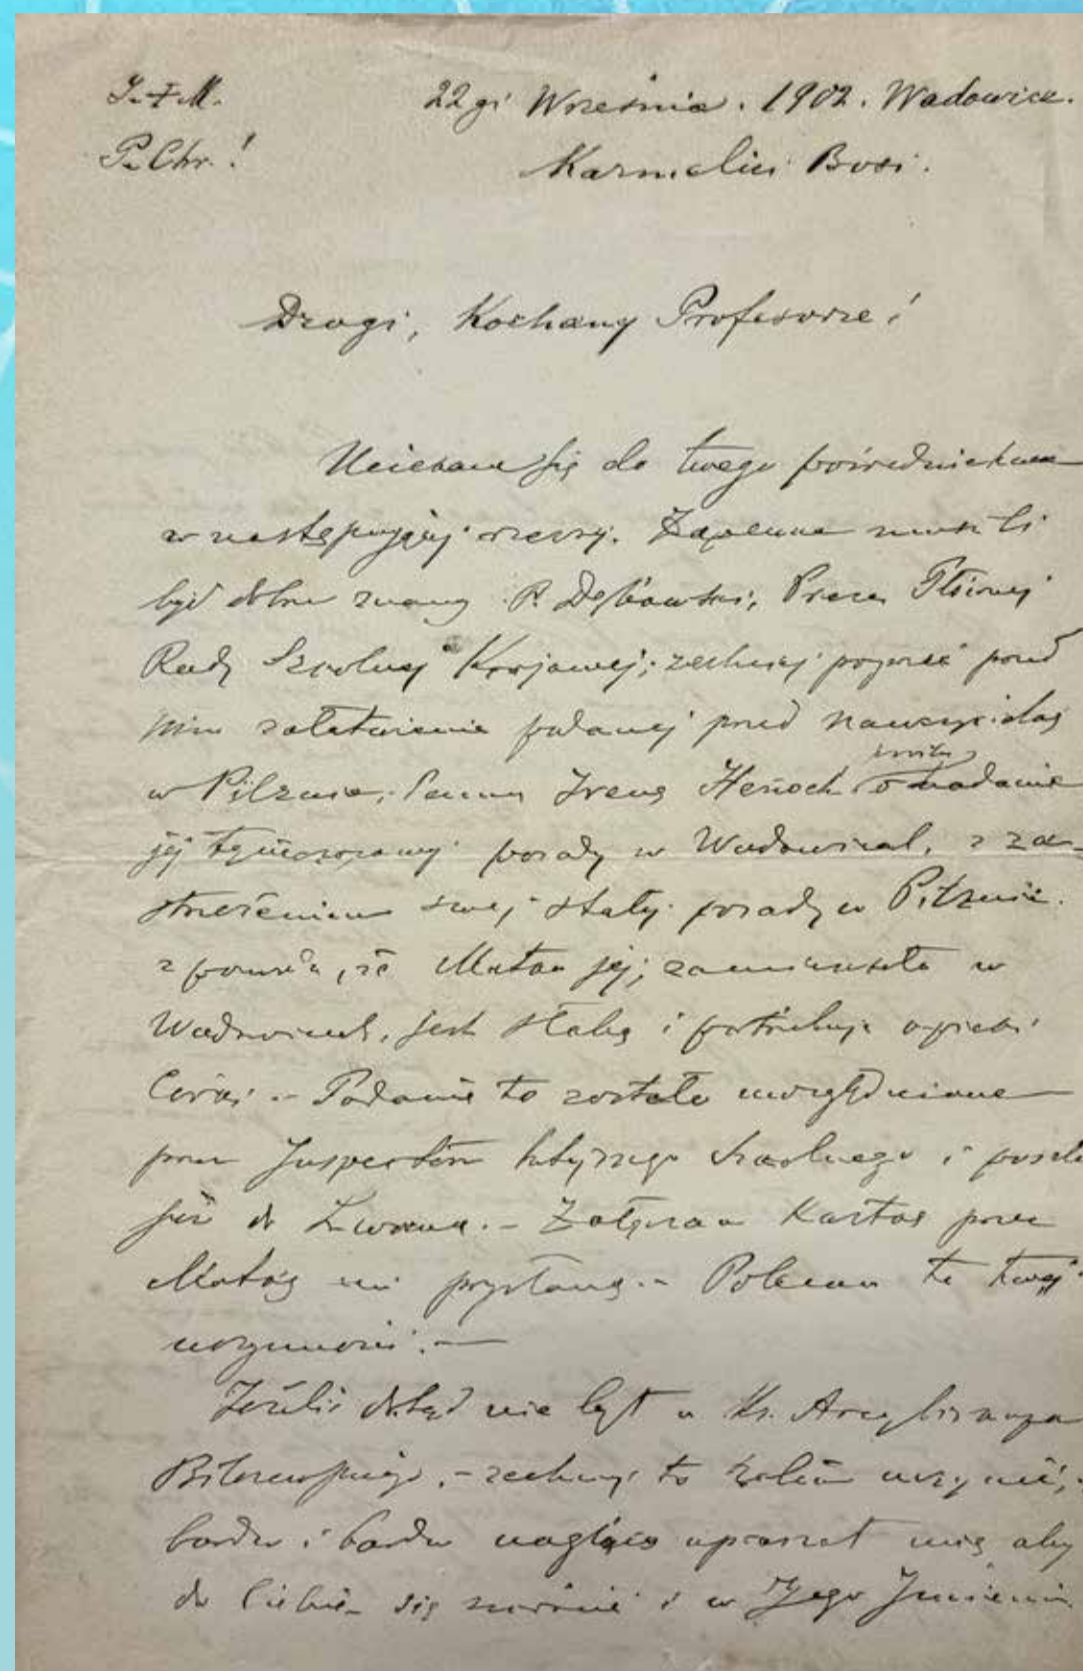 J. + M. 22gi Września. 1902. Wadowice.
P. Chr.! Karmelici Bosi.
Drogi, Kochany Profesorze!
Uciekam się do twego pośrednictwa
w następującej rzeczy. Zapewne musi Ci
być dobrze znany P. Dębowski, Prezes
Rady Szkolnej Krajowej; zechciej poprzeć przed
nim załatwienie podanej przed nauczycielkę
w Pilznie, Pannę Irenę Henoch
o nadanie
jej tymczasowej posady w Wadowicach, z za-
strzeżeniem swej stałej posady w Pilznie.
z powodu, że Matka jej, zamieszkała w
Wadowicach, jest słabą i potrzebuje opieki
Córki. – Podanie to zostało uwzględnione
przez Inspektora tutejszego szkolnego i poszło
już do Lwowa. – Załączam Kartkę przez
Matkę mi przysłaną. – Polecam to twej
uczynności. –
Jeżeliś dotąd nie był u Ks. Arcybiskupa
Bilczewskiego, – zechciej to uczynić,
bardzo i bardzo upraszał mię aby
do Ciebie się zwrócić i w Jego Imieniu